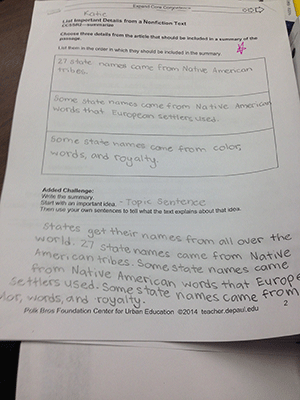 Expand Core Competence
Katie
List Important Details from a Nonfiction Text
CCSSR2—summarize
Choose three details from the article that should be included in a summary of the
passage.
List them in the order in which they should be included in the summary.
27 state names came from Native American
tribes.
Some state names came from Native American
words that European settlers used.
Some state names came from color,
words, and royalty.
Added Challenge:
Write the summary.
Start with an important idea. - Topic Sentence
Then use your own sentences to tell what the text explains about that idea.
States get their names from all over the
world. 27 state names came from Native
American tribes. Some state names came
from Native American words that Europe
settlers used. Some state names came from
lor, words, and royalty.
2
Polk Bros Foundation Center for Urban Education ©2014 teacher.depaul.edu